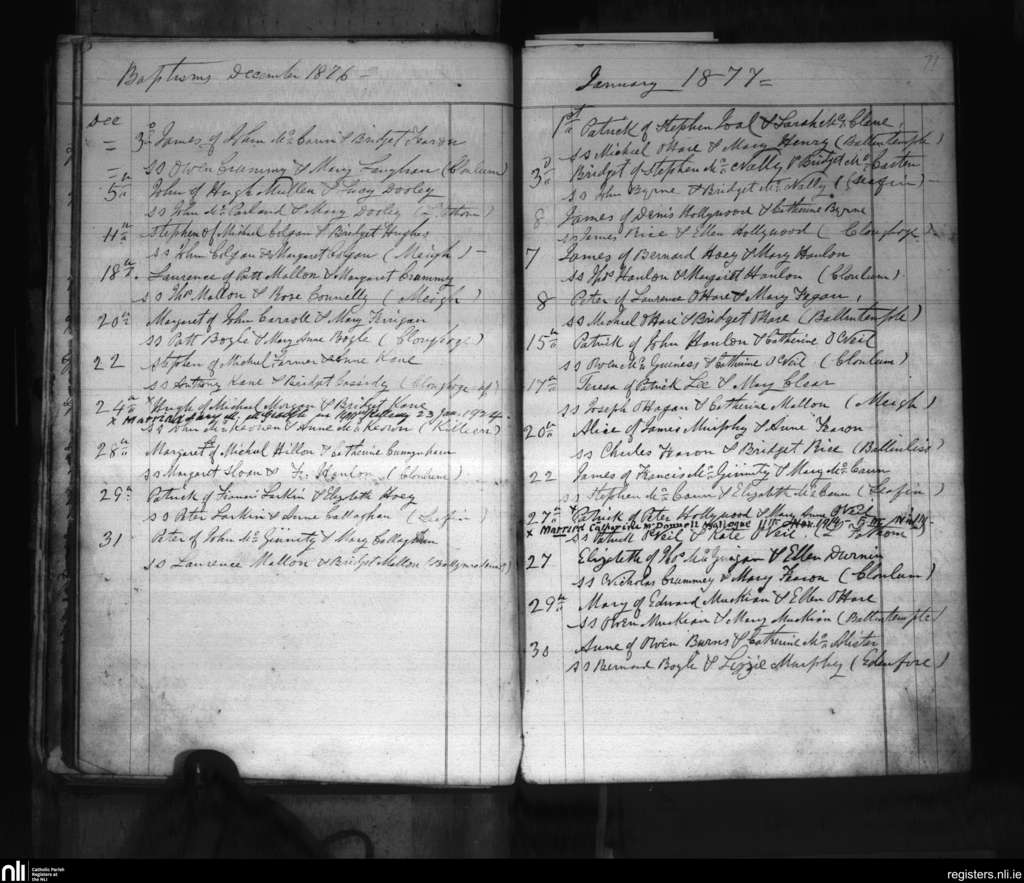 Baptisms December 1876
Dec
3d James of John Mc Cann & Bridget Fearon
SS Owen Crummy & Mary Laughran (Clonlum)
5th John of Hugh Mullen & Lucy Dooley
SS John Mc Parland & Mary Dooley
11th Stephen of Michael Colgan & Bridget Hughes
SS John Colgan & Margaret Colgan (Meigh)
18th Laurence of Patt Mallon & Margaret Crummy
SS Thos Mallon & Rose Connelly (Meigh)
20th Margaret of John Carroll & Mary Finigan
SS Patt Boyle & Mary Anne Boyle (Cloughoge)
22 Stephen of Michael Farmer & Anne Kane
SS Anthony Kane & Bridget Cassidy (Cloughoge)
24th x Hugh of Michael Morgan & Bridget Kane
x Married 23 Jan. 1924
SS John Mc Keown & Anne Mc Keown (Killeen)
28th Margaret of Michael Hillon & Catherine Cunningham
SS Margaret Sloan & Hanlon (Clonlum)
29th Patrick of Francis Larkin & Elizabeth Hoey
SS Peter Larkin & Anne Callaghan (Seafin)
31 Peter of John Mc Ginnity & Mary Callaghan
SS Laurence Mallon & Bridget Mallon
71
January 1877
1st Patrick of Stephen Toal & Sarah Mc Clene
SS Michael O Hare & Mary Henry (Ballintemple)
3d Bridget of Stephen Mc Nally & Bridget Mc Carten
SS John Byrne & Bridget Mc Nally (Seafin)
8 James of Denis Hollywood & Catherine Byrne
SS James Rice & Ellen Hollywood (Cloughoge)
7 James of Bernard Hoey & Mary Hanlon
SS Thos Hanlon & Margaret Hanlon (Clonlum)
8 Peter of Laurence O Hare & Mary Fegan
SS Michael O Hare & Bridget O Hare (Ballintemple)
15th Patrick of John Hanlon & Catherine O Neil
SS Owen Mc Guiness & Catherine O Neil (Clonlum)
17th Teresa of Patrick Lee & Mary Clear
SS Joseph O Hagan & Catherine Mallon (Meigh)
20th Alice of James Murphy & Anne Fearon
SS Charles Fearon & Bridget Rice (Ballinliss)
22 James of Francis Mc Ginnity & Mary Mc Cann
SS Stephen Mc Cann & Elizabeth Mc Cann (Seafin)
27th x Patrick of Peter Hollywood & Mary Anne O Neil
x Married Catherine McDonnell 11th 1919
SS Patrick O Neil & Kate O Neil
27 Elizabeth of Thos Mc Guigan & Ellen Durnin
SS Nicholas Crummey & Mary Fearon (Clonlum)
29th Mary of Edward Muckian & Ellen O Hare
SS Owen Muckian & Mary Muckian (Ballintemple)
30 Anne of Owen Burns & Catherine Mc Alister
SS Bernard Boyle & Lizzie Murphy (Edenfore)
nli
Catholic Parish
Registers at
the NLI
registers.nli.ie